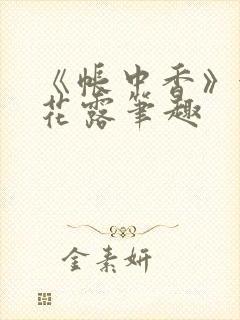 《帐中香》
花露笔趣
金素妍